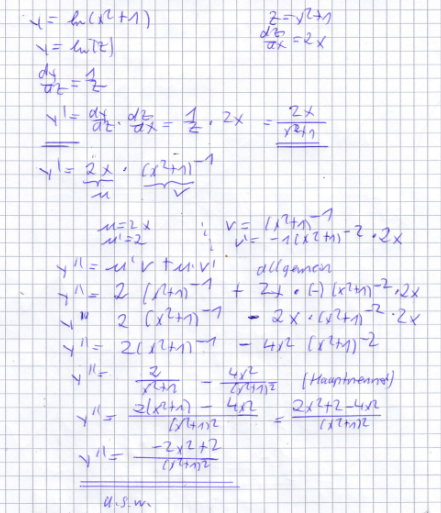 y = ln(x²+1)    z = x²+1
y = ln(z)    dz/dx = 2x
dy/dz = 1/z
y' = dy/dz · dz/dx = 1/z · 2x = 2x/(x²+1)
y' = 2x · (x²+1)⁻¹
u    v
u = 2x ; v = (x²+1)⁻¹
u' = 2 ; v' = -1(x²+1)⁻² · 2x
y'' = u'v + u·v' allgemein
y'' = 2 (x²+1)⁻¹ + 2x · (-) (x²+1)⁻² · 2x
y'' 2 (x²+1)⁻¹ - 2x · (x²+1)⁻² · 2x
y'' = 2(x²+1)⁻¹ - 4x² (x²+1)⁻²
y'' = 2/(x²+1) - 4x²/(x²+1)² (Hauptnenner)
y'' = (2(x²+1) - 4x²)/(x²+1)² = (2x²+2-4x²)/(x²+1)²
y'' = (-2x²+2)/(x²+1)²
u.s.w.